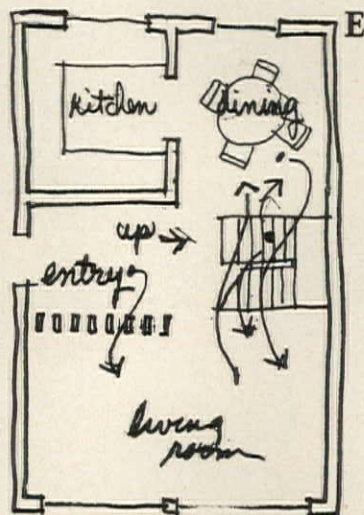 E
kitchen dining
up
entry
living
room